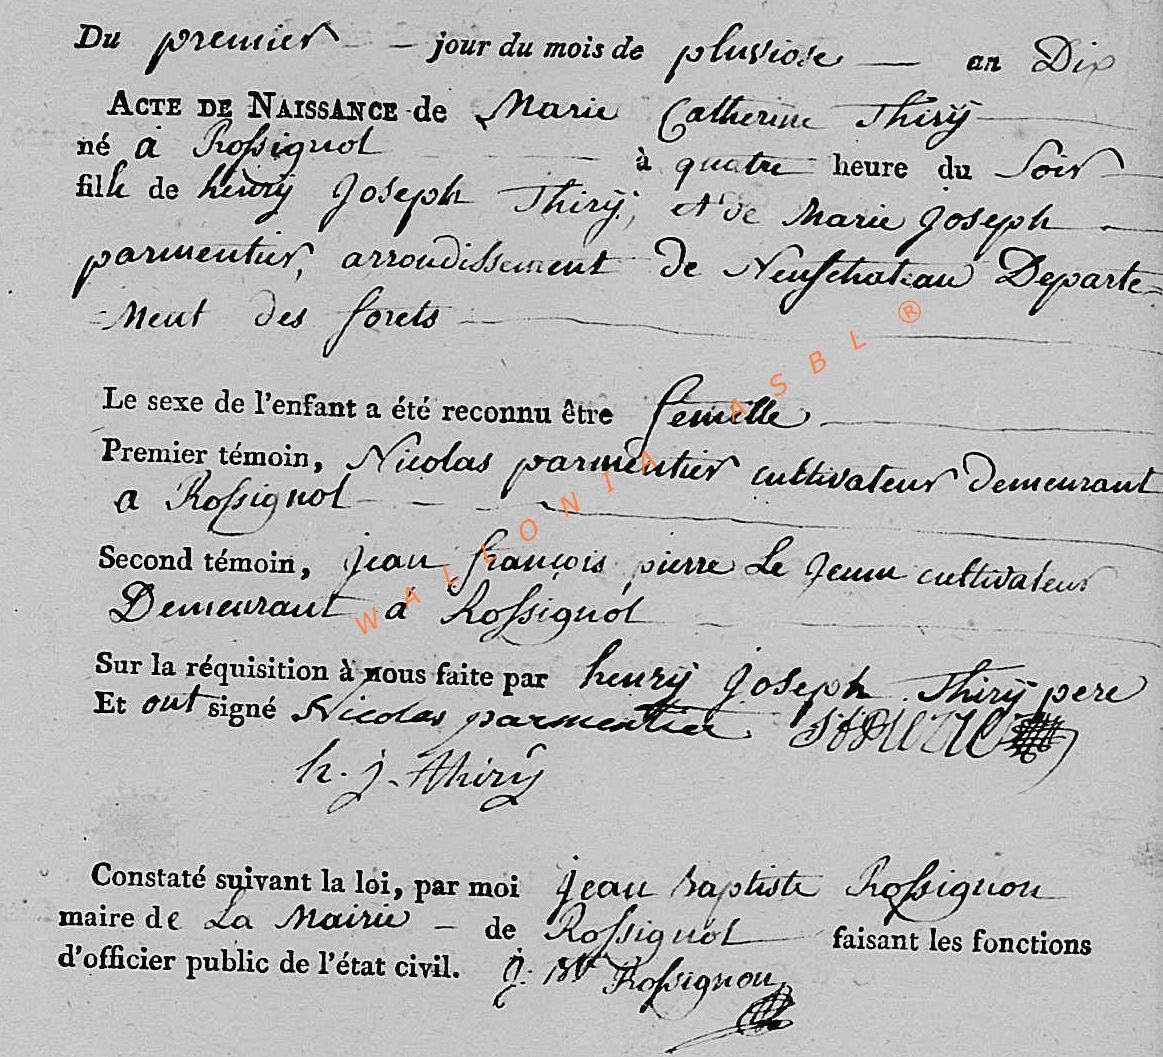 Du premier jour du mois de pluviose an Dix
ACTE DE NAISSANCE de Marie Catherine Thirÿ
né à Rossignol à quatre heure du Soir
fille de henrÿ Joseph Thirÿ, et de Marie Joseph
parmentier, arroudissement de Neufchateau Departe=
=Ment des forets
Le sexe de l'enfant a été reconnu être femelle
Premier témoin, Nicolas parmentier cultivateur Demeurant
a Rossignol
Second témoin, jean françois pierre Le Jeune cultivateur
Demeurant à Rossignol
Sur la réquisition à nous faite par henrÿ Joseph Thirÿ pere
Et ont signé Nicolas parmentier
h. j. thirÿ
Constaté suivant la loi, par moi Jean Baptiste Rossignon
maire de La Mairie de Rossignol faisant les fonctions
d'officier public de l'état civil. J. Bt Rossignon
WALLONIA ASBL ®